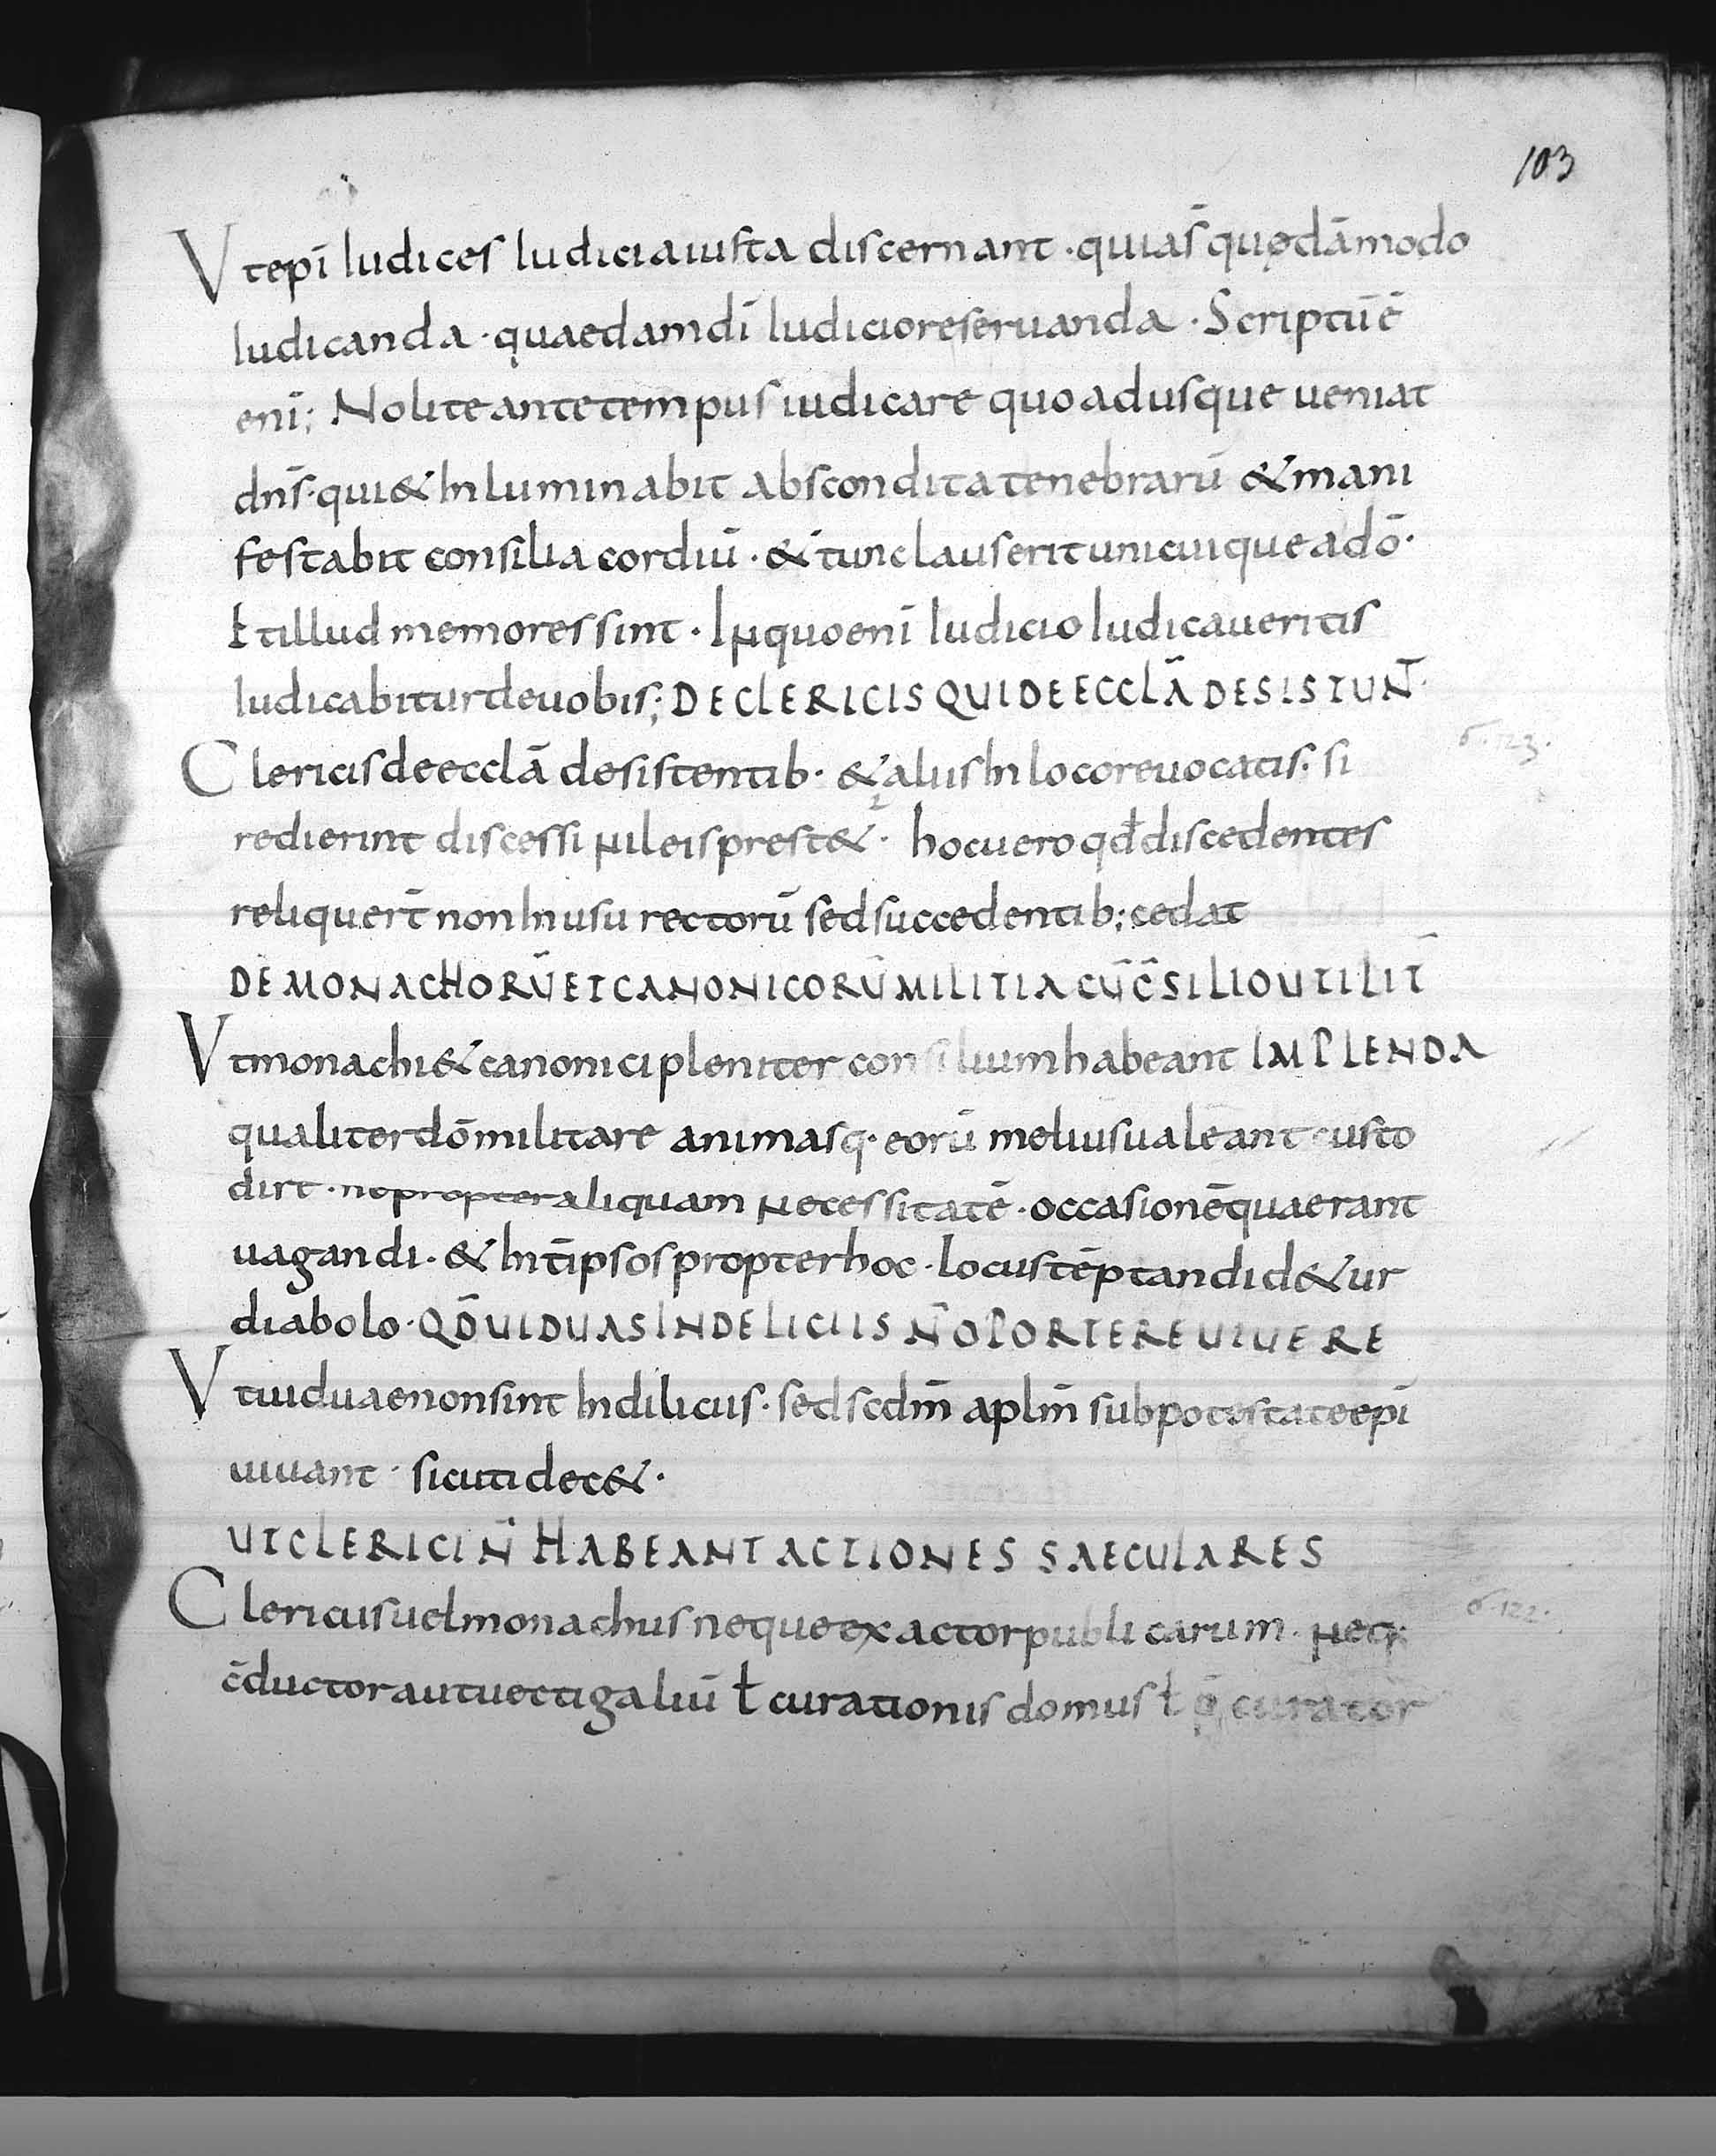 103
Vt epī Iudices Iudicia iusta discernant · quia s̄ quędā modo
Iudicanda · quaedam dī Iudicio reseruanda · Scriptū ē
enī; Nolite ante tempus iudicare quo adusque ueniat
dn̄s · qui & Inluminabit abscondita tenebrarū & mani
festabit consilia cordiū · & tunc laus erit unicuique a dō ·
Et illud memores sint · In quo enī Iudicio Iudicaueritis
Iudicabitur de uobis; DE CLERICIS QUI DE ECCLĀ DESISTUN̄ ·
σ · 123 ·
Clericis de ecclā desistentib · & aliis In loco reuocatis · si
redierint discessi nil eis prest& · hoc uero qđ discedentes
reliquer̄t non In usu rectorū sed succedentib; cedat
DE MONACHORŪ ET CANONICORŪ MILITIA CŪ C̄SILIO UTILIT̄
Vt monachi & canonici pleniter consilium habeant IMPLENDA
qualiter dō militare animasq · eorū melius ualeant custo
dire · ne propter aliquam necessitatē · occasionē quaerant
uagandi · & Int̄ ipsos propter hoc · locus tēptandi d&ur
diabolo · QD̄ UIDUAS IN DELICIIS N̄ OPORTERE UIUERE
Vt uiduae non sint In diliciis · sed scdm̄ aplm̄ sub potestate epī
uiuant · sicuti dec& ·
UT CLERICI N̄ HABEANT ACTIONES SAECULARES
σ · 122 ·
Clericus uel monachus neque exactor publicarum · neq;
c̄ductor aut uectigaliū ł curationis domus ł curator